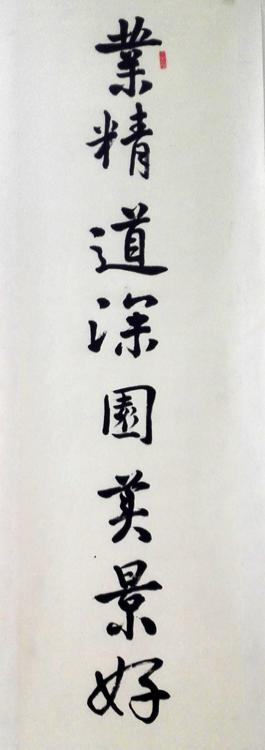 業精道深園美景好